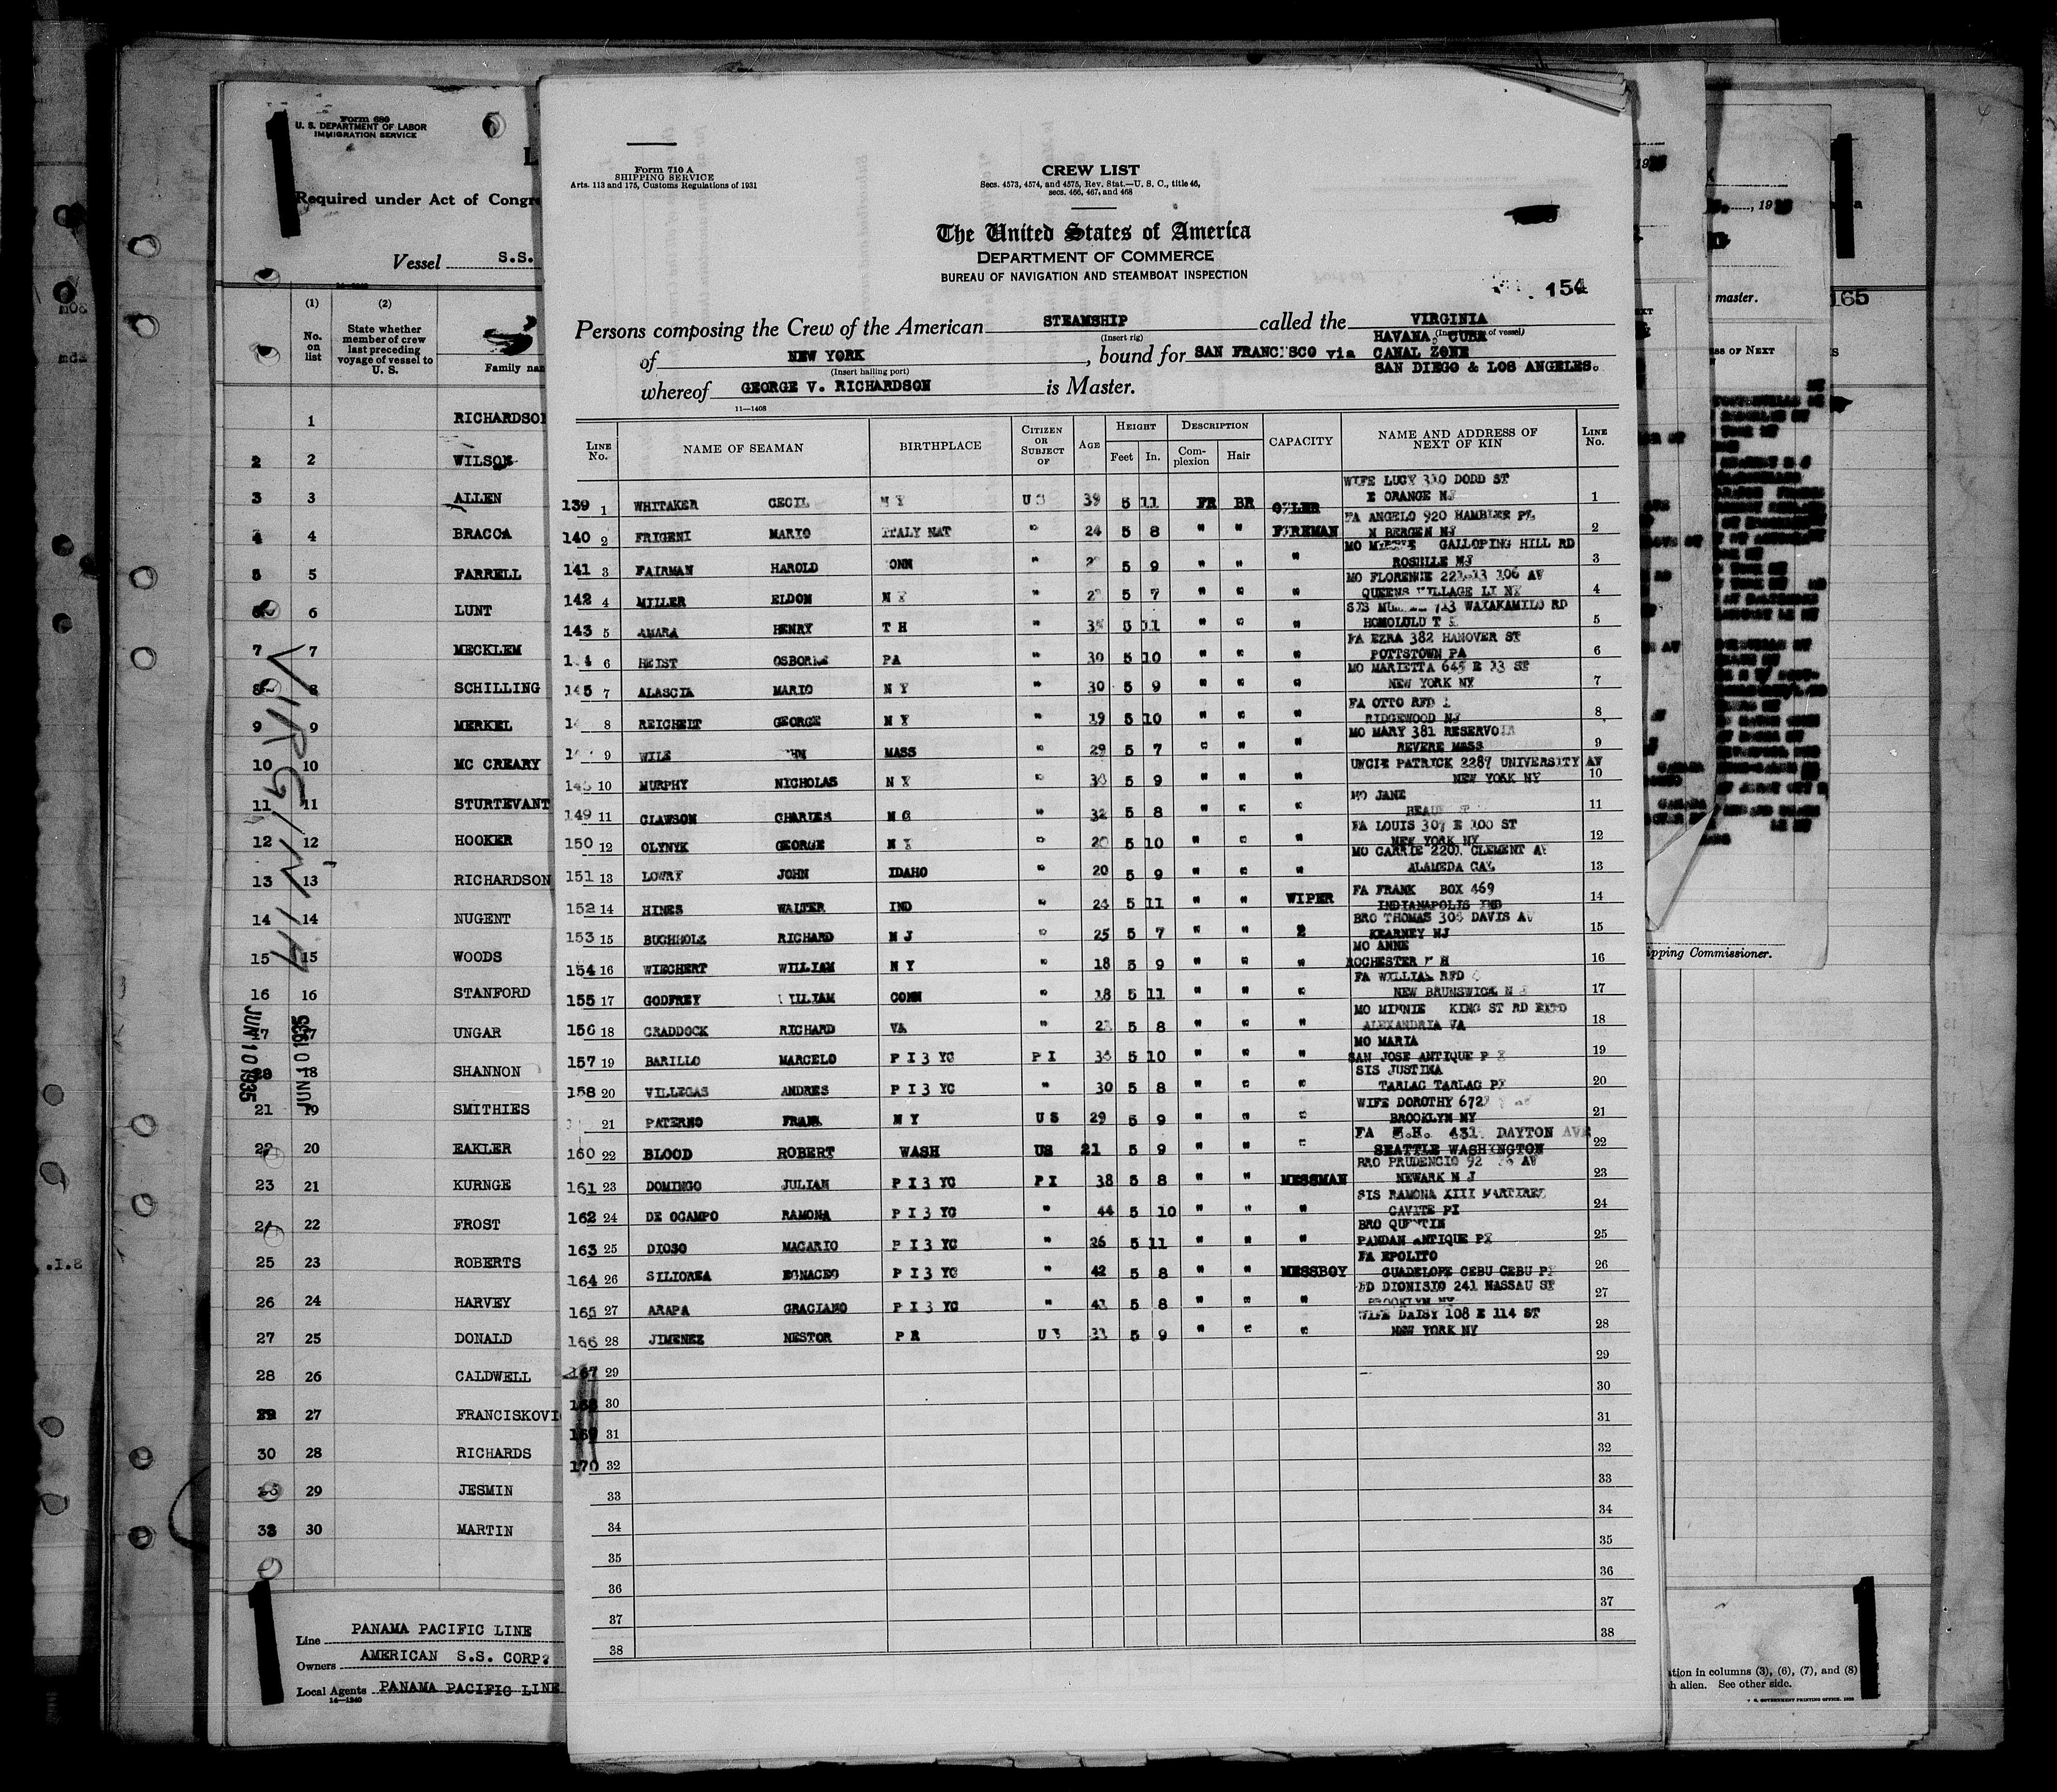 Form 680
U. S. DEPARTMENT OF LABOR
IMMIGRATION SERVICE
Required under Act of Congre
Vessel S.S.
(1) (2)
No. on list
State whether member of crew last preceding voyage of vessel to U. S.
Family nam
1 RICHARDSON
2 2 WILSON
3 3 ALLEN
4 4 BRACCA
5 5 FARRELL
6 LUNT
7 7 MECKLEM
8 8 SCHILLING
9 9 MERKEL
10 10 MC CREARY
11 11 STURTEVANT
12 12 HOOKER
13 13 RICHARDSON
14 14 NUGENT
15 15 WOODS
16 16 STANFORD
17 17 UNGAR
18 SHANNON
21 19 SMITHIES
22 20 EAKLER
23 21 KURNGE
24 22 FROST
25 23 ROBERTS
26 24 HARVEY
27 25 DONALD
28 26 CALDWELL
29 27 FRANCISKOVI
30 28 RICHARDS
29 JESMIN
32 30 MARTIN
VIRGINIA
JUN 10 1935
JUN 10 1935
Line PANAMA PACIFIC LINE
Owners AMERICAN S.S. CORP.
Local Agents PANAMA PACIFIC LINE
14—1240
Form 710 A
SHIPPING SERVICE
Arts. 113 and 175, Customs Regulations of 1931
CREW LIST
Secs. 4573, 4574, and 4575, Rev. Stat.—U. S. C., title 46,
secs. 466, 467, and 468
The United States of America
DEPARTMENT OF COMMERCE
BUREAU OF NAVIGATION AND STEAMBOAT INSPECTION
154
Persons composing the Crew of the American STEAMSHIP called the VIRGINIA
(Insert rig) (Insert name of vessel)
HAVANA, CUBA
of NEW YORK, bound for SAN FRANCISCO via CANAL ZONE
(Insert hailing port)
SAN DIEGO & LOS ANGELES.
whereof GEORGE V. RICHARDSON is Master.
11—1408
LINE No. NAME OF SEAMAN BIRTHPLACE CITIZEN OR SUBJECT OF AGE HEIGHT Feet In. DESCRIPTION Complexion Hair CAPACITY NAME AND ADDRESS OF NEXT OF KIN LINE No.
WIFE LUCY 310 DODD ST
139 1 WHITAKER CECIL N Y U S 39 5 11 FR BR OILER E ORANGE NJ 1
FA ANGELO 920 HAMBLER PL
140 2 FRIGENI MARIO ITALY NAT " 24 5 8 " " FIREMAN N BERGEN NJ 2
MO GALLOPING HILL RD
141 3 FAIRMAN HAROLD ONN " 5 9 " " " ROSELLE NJ 3
MO FLORENCE 221-13 106 AV
142 4 MILLER ELDON N Y " 5 7 " " " QUEENS VILLAGE LI NY 4
SIS WAIAKAMILO RD
143 5 AMARA HENRY T H " 5 11 " " " HONOLULU T 5
FA EZRA 382 HANOVER ST
6 HEIST OSBORNE PA " 30 5 10 " " " POTTSTOWN PA 6
MO MARIETTA 645 E 13 ST
145 7 ALASCIA MARIO N Y " 30 5 9 " " " NEW YORK NY 7
FA OTTO RFD 1
8 REICHELT GEORGE N Y " 19 5 10 " " " RIDGEWOOD NJ 8
MO MARY 381 RESERVOIR
9 WILE MASS " 29 5 7 " " " REVERE MASS 9
UNCLE PATRICK 2287 UNIVERSITY AV
10 MURPHY NICHOLAS N Y " 5 9 " " " NEW YORK NY 10
MO JANE
149 11 CLAWSON CHARLES N C " 32 5 8 " " " 11
FA LOUIS 307 E 100 ST
150 12 OLYNYK GEORGE N Y " 20 5 10 " " " NEW YORK NY 12
MO CARRIE 2201 CLEMENT AV
151 13 LOWRY JOHN IDAHO " 20 5 9 " " " ALAMEDA CAL 13
FA FRANK BOX 469
152 14 HINES WALTER IND " 24 5 11 " " WIPER INDIANAPOLIS IND 14
BRO THOMAS 304 DAVIS AV
153 15 BUCHHOLZ RICHARD N J " 25 5 7 " " " KEARNEY NJ 15
MO ANNE
154 16 WIECHERT WILLIAM N Y " 18 5 9 " " " ROCHESTER N H 16
FA WILLIAM RFD
155 17 GODFREY WILLIAM CONN " 18 5 11 " " " NEW BRUNSWICK N J 17
MO MINNIE KING ST RD
156 18 CRADDOCK RICHARD VA " 5 8 " " " ALEXANDRIA VA 18
MO MARIA
157 19 BARILLO MARCELO P I 3 YC P I 5 10 " " " SAN JOSE ANTIQUE P I 19
SIS JUSTINA
158 20 VILLEGAS ANDRES P I 3 YC " 30 5 8 " " " TARLAC TARLAC PI 20
WIFE DOROTHY 672
21 PATERNO FRANK N Y U S 29 5 9 " " " BROOKLYN NY 21
FA E.H. 431 DAYTON AVE
160 22 BLOOD ROBERT WASH US 21 5 9 " " " SEATTLE WASHINGTON 22
BRO PRUDENCIO 92 AV
161 23 DOMINGO JULIAN P I 3 YC P I 38 5 8 " " MESSMAN NEWARK N J 23
SIS RAMONA XIII MARTIREZ
162 24 DE OCAMPO RAMONA P I 3 YC " 44 5 10 " " " CAVITE PI 24
BRO QUENTIN
163 25 DIOSO MACARIO P I 3 YC " 26 5 11 " " " PANDAN ANTIQUE PI 25
FA EPOLITO
164 26 SILIOREA EGNACEO P I 3 YC " 42 5 8 " " MESSBOY GUADELOPE CEBU CEBU PI 26
DIONISIO 241 NASSAU ST
165 27 ARAPA GRACIANO P I 3 YC " 41 5 8 " " " BROOKLYN NY 27
WIFE DAISY 108 E 114 ST
166 28 JIMENEZ NESTOR P R U S 5 9 " " " NEW YORK NY 28
167 29 29
168 30 30
169 31 31
170 32 32
33 33
34 34
35 35
36 36
37 37
38 38
, 19
master.
165
ss of Next
ipping Commissioner.
ation in columns (3), (6), (7), and (8)
h alien. See other side.
U. S. GOVERNMENT PRINTING OFFICE